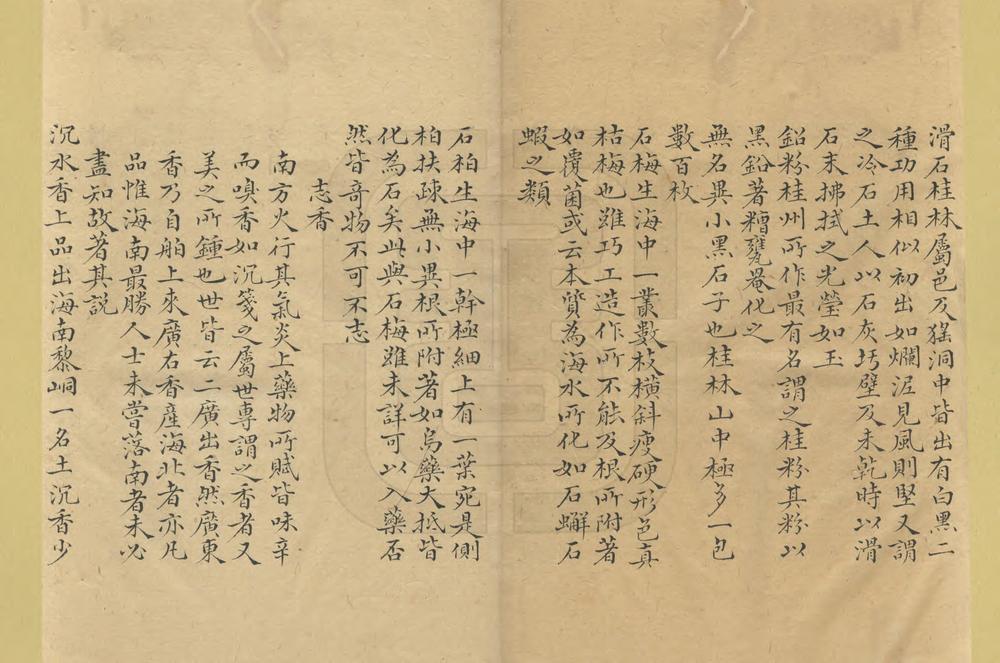 滑石桂林屬邑及猺洞中皆出有白黑二
種功用相似初出如爛泥見風則堅又謂
之冷石土人以石灰圬壁及未乾時以滑
石末拂拭之光瑩如玉
鉛粉桂州所作最有名謂之桂粉其粉以
黑鉛著糟甕罨化之
無名異小黑石子也桂林山中極多一包
數百枚
石梅生海中一叢數枝橫斜瘦硬形色真
枯梅也雖巧工造作所不能及根所附著
如覆菌或云本質為海水所化如石蠏石
蝦之類
石柏生海中一幹極細上有一葉宛是側
柏扶疎無小異根所附著如烏藥大抵皆
化為石矣此與石梅雖未詳可以入藥否
然皆奇物不可不志
志香
南方火行其氣炎上藥物所賦皆味辛
而嗅香如沉箋之屬世專謂之香者又
美之所鍾也世皆云二廣出香然廣東
香乃自舶上來廣右香產海北者亦凡
品惟海南最勝人士未嘗落南者未必
盡知故著其説
沉水香上品出海南黎峒一名土沉香少